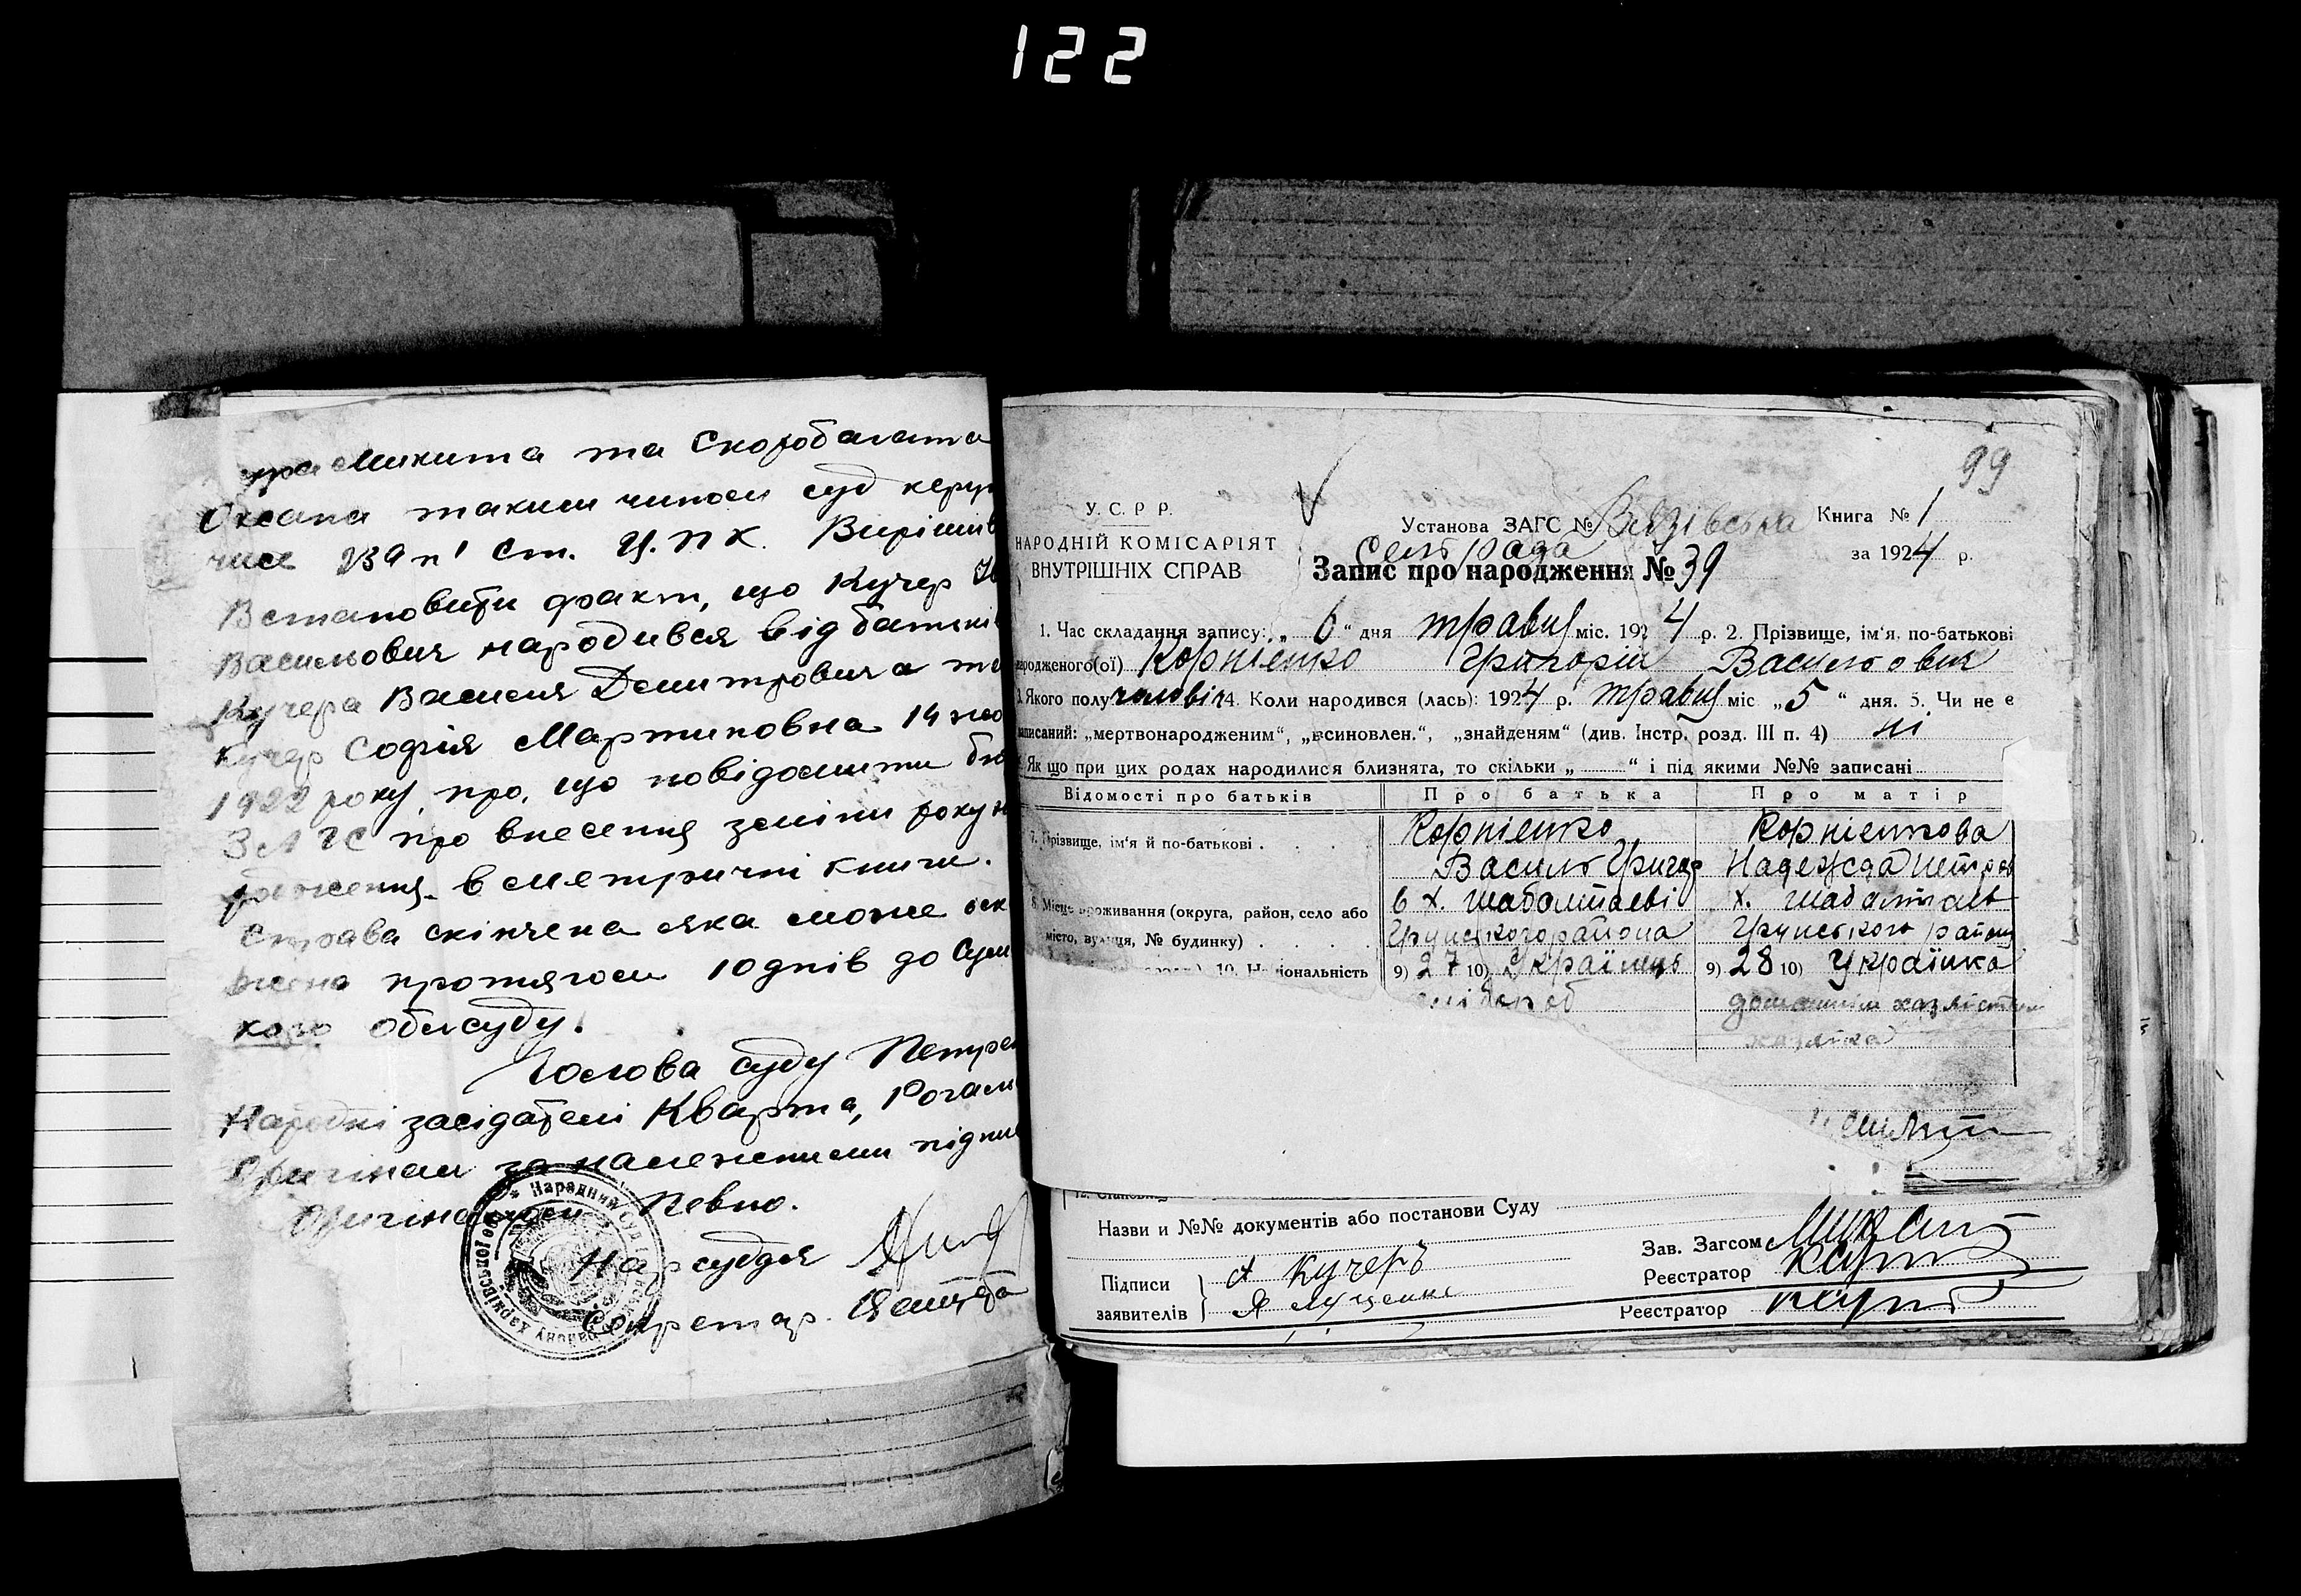 122
Микита та Скоробагата
Оксана таким чином суд керую
чись ст. Ц.П.К. Вирішив
Встановити факт, що Кучер
Васильович народився від батьків
Кучера Василя Демитровича та
Кучер Софія Мартиновна 14
1922 року, про, що повідомити
ЗАГС про внесення зміни року
рдження в метричні книги.
Справа скінчена яка може оск
жена протягом 10 днів до Сум
кого облсуду.
Голова суду Петрен
Народні засідателі Кварта,
Оригінал за належними підпи
Оригіналом Певно.
Нарсуддя
Секретар.
Народний Суд
району Харківської
99
У.С.Р.Р.
НАРОДНІЙ КОМІСАРІЯТ
ВНУТРІШНІХ СПРАВ
Установа ЗАГС № Вязівська
Сельрада
Книга № 1
за 1924 р.
Запис про народження № 39
1. Час складання запису: „ 6 “ дня травня міс. 1924 р. 2. Прізвище, ім‘я, по-батькові
народженого(ої) Корнієнко Григорій Васильович
3. Якого полу чоловіч 4. Коли народився (лась): 1924 р. травня міс „5“ дня. 5. Чи не є
записаний: „мертвонародженим“, „всиновлен.“, „знайденям“ (див. Інстр. розд. III п. 4) ні
Як що при цих родах народилися близнята, то скільки „ “ і під якими №№ записані
Відомості про батьків Про батька Про матір
7. Прізвище, ім‘я й по-батькові . . . . Корнієнко Корнієнкова
Василь Григор Надежда Петров
8. Місце проживання (округа, район, село або
місто, вулиця, № будинку) . . . .
в х. Шаболтаеві х. Шаболтаев
Грунського района Грунського району
10. Національність 9) 27 10) Українець 9) 28 10) Українка
хлібороб домашнім хазяйством
Назви и №№ документів або постанови Суду
Підписи
заявителів
Кучеръ
Я Луценко
Зав. Загсом
Реєстратор
Реєстратор